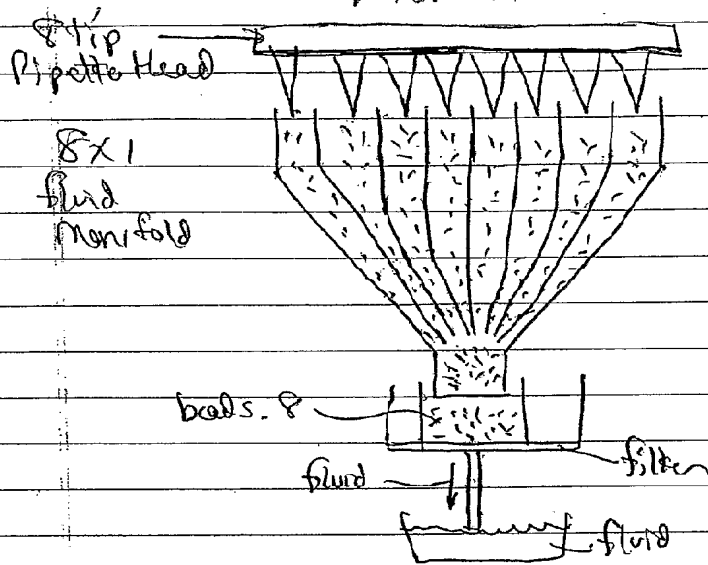 8 tip
Pipette Head
8x1
fluid
Manifold
beads. 8
filter
fluid
fluid